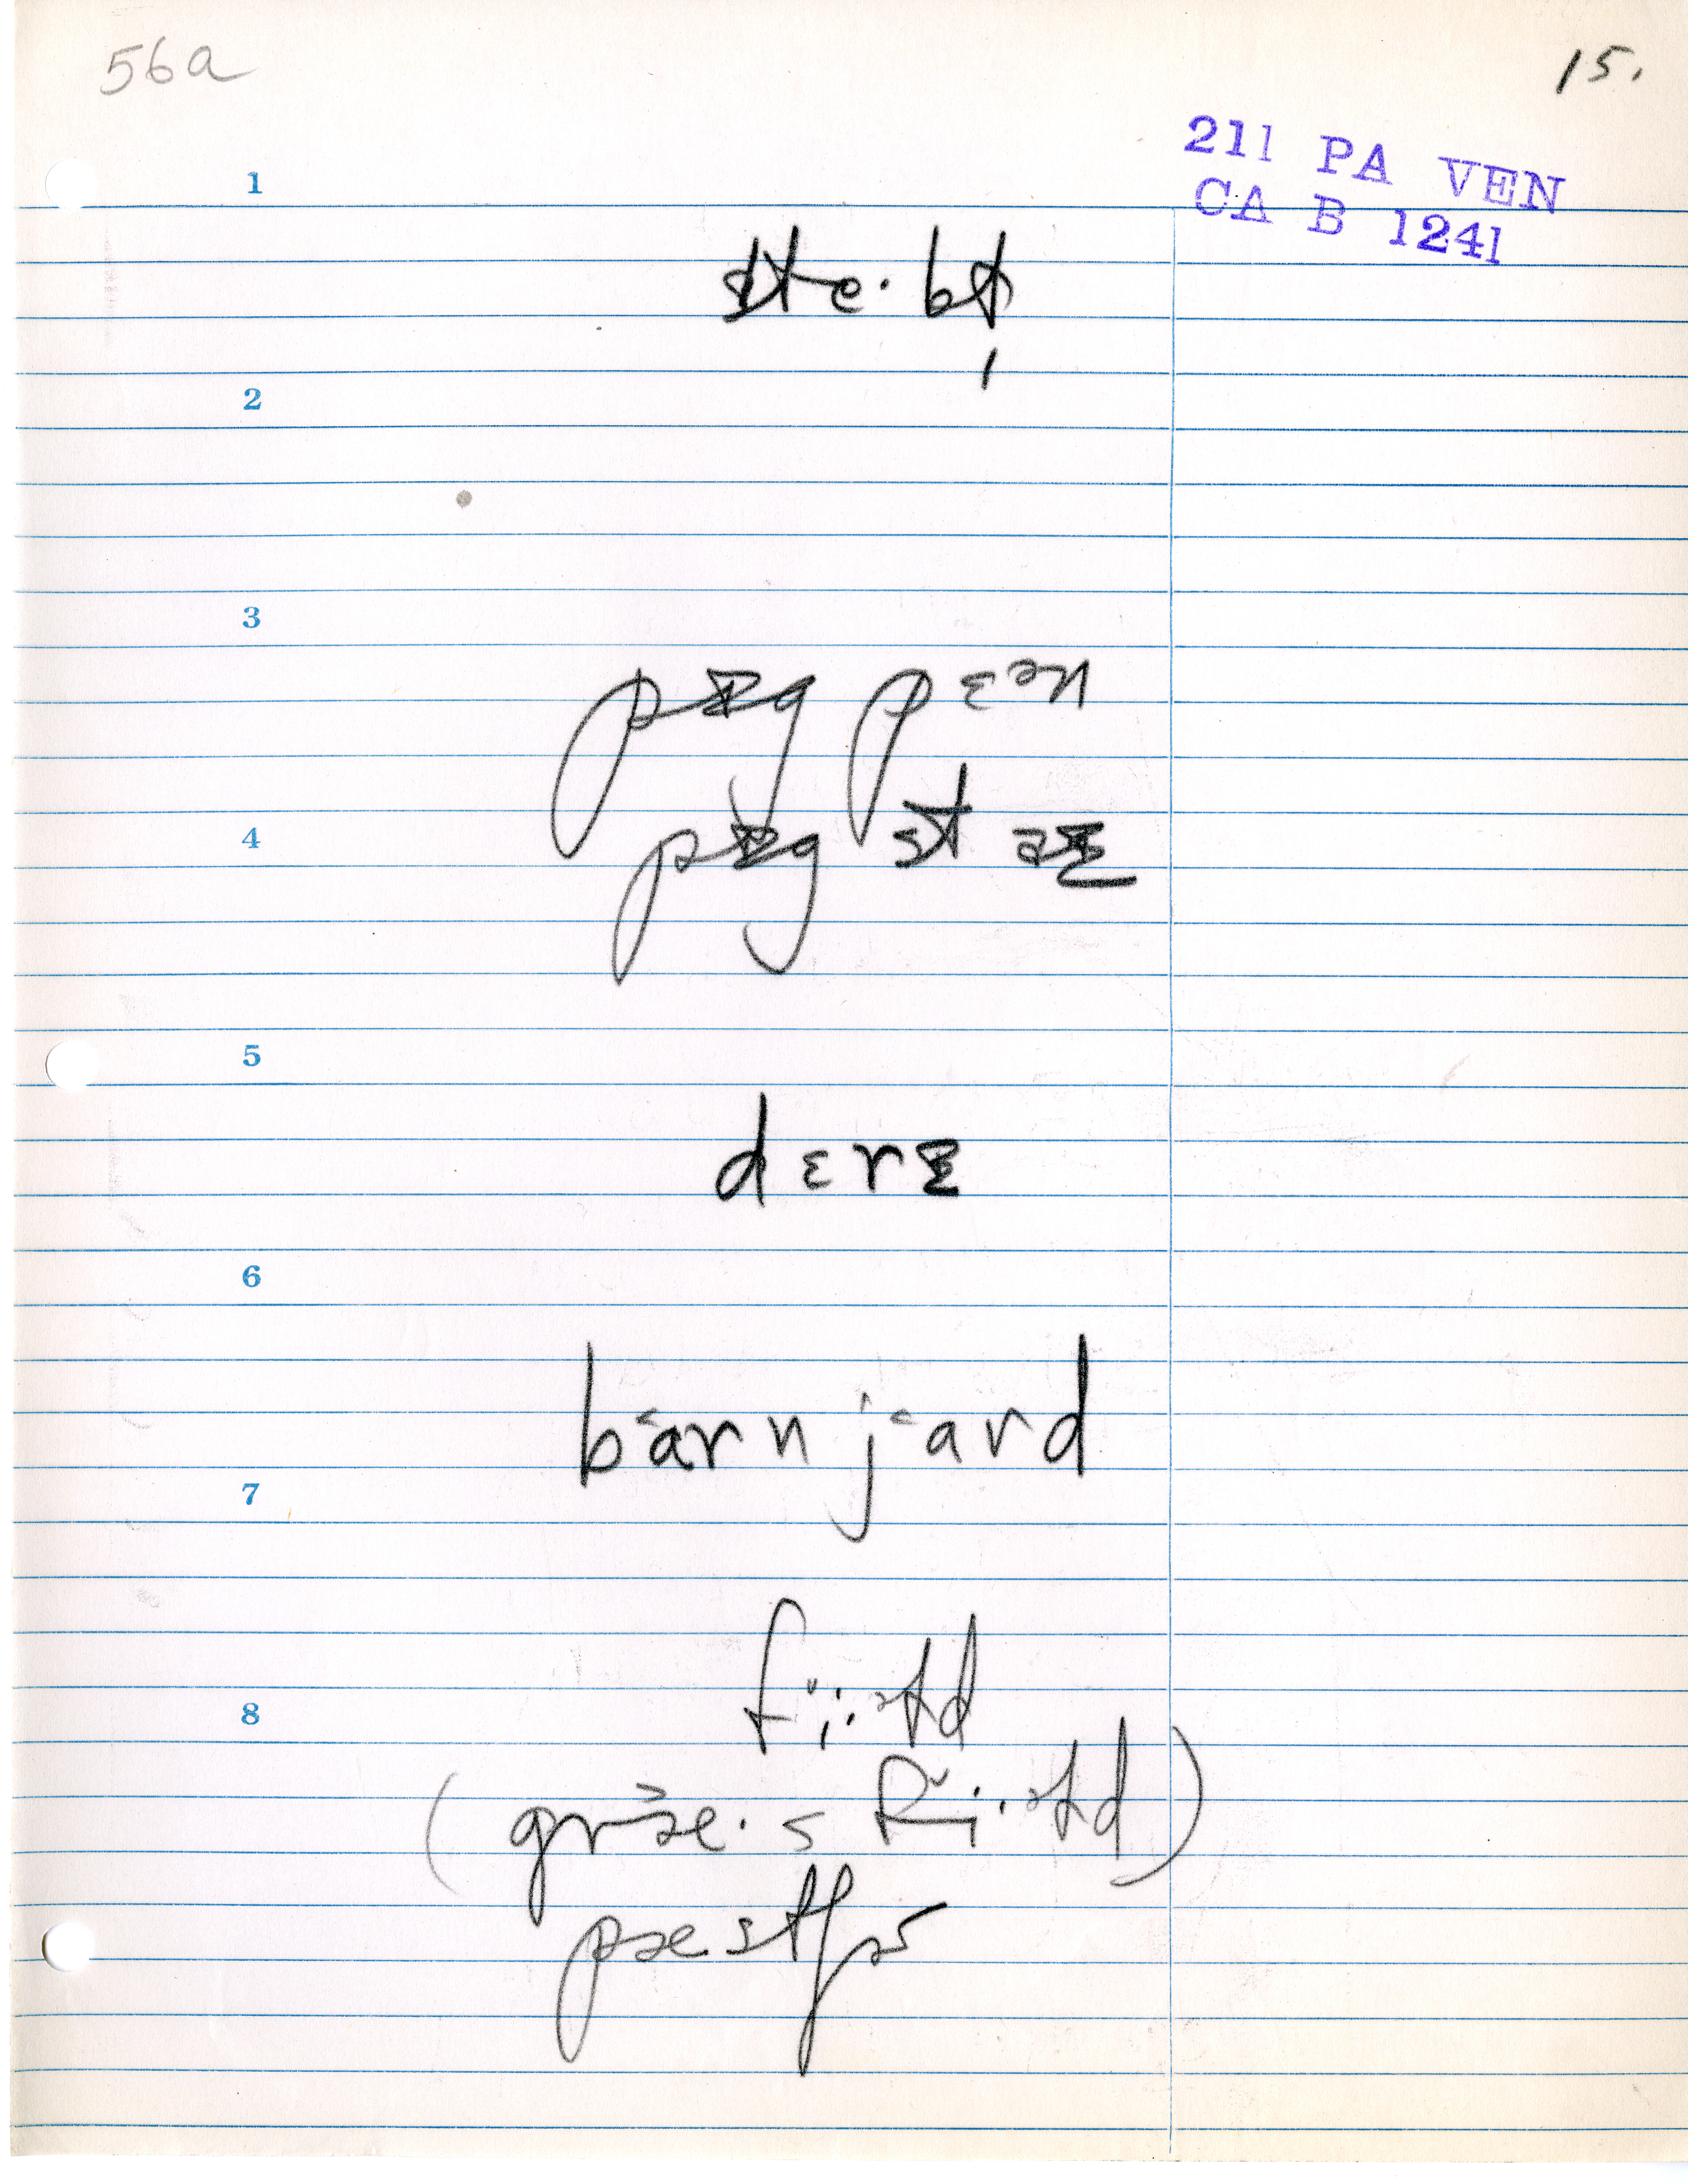 56a
15.
211 PA VEN
CA B 1241
1
ste·bɫ̩
2
3
pɪg pɛən
4
pɪg staɪ
5
dɛrɪ
6
b˂arn j˂ard
7
fi˅·əɫd
8
(græ˃·s fi˅·əɫd)
pæstʃɚ